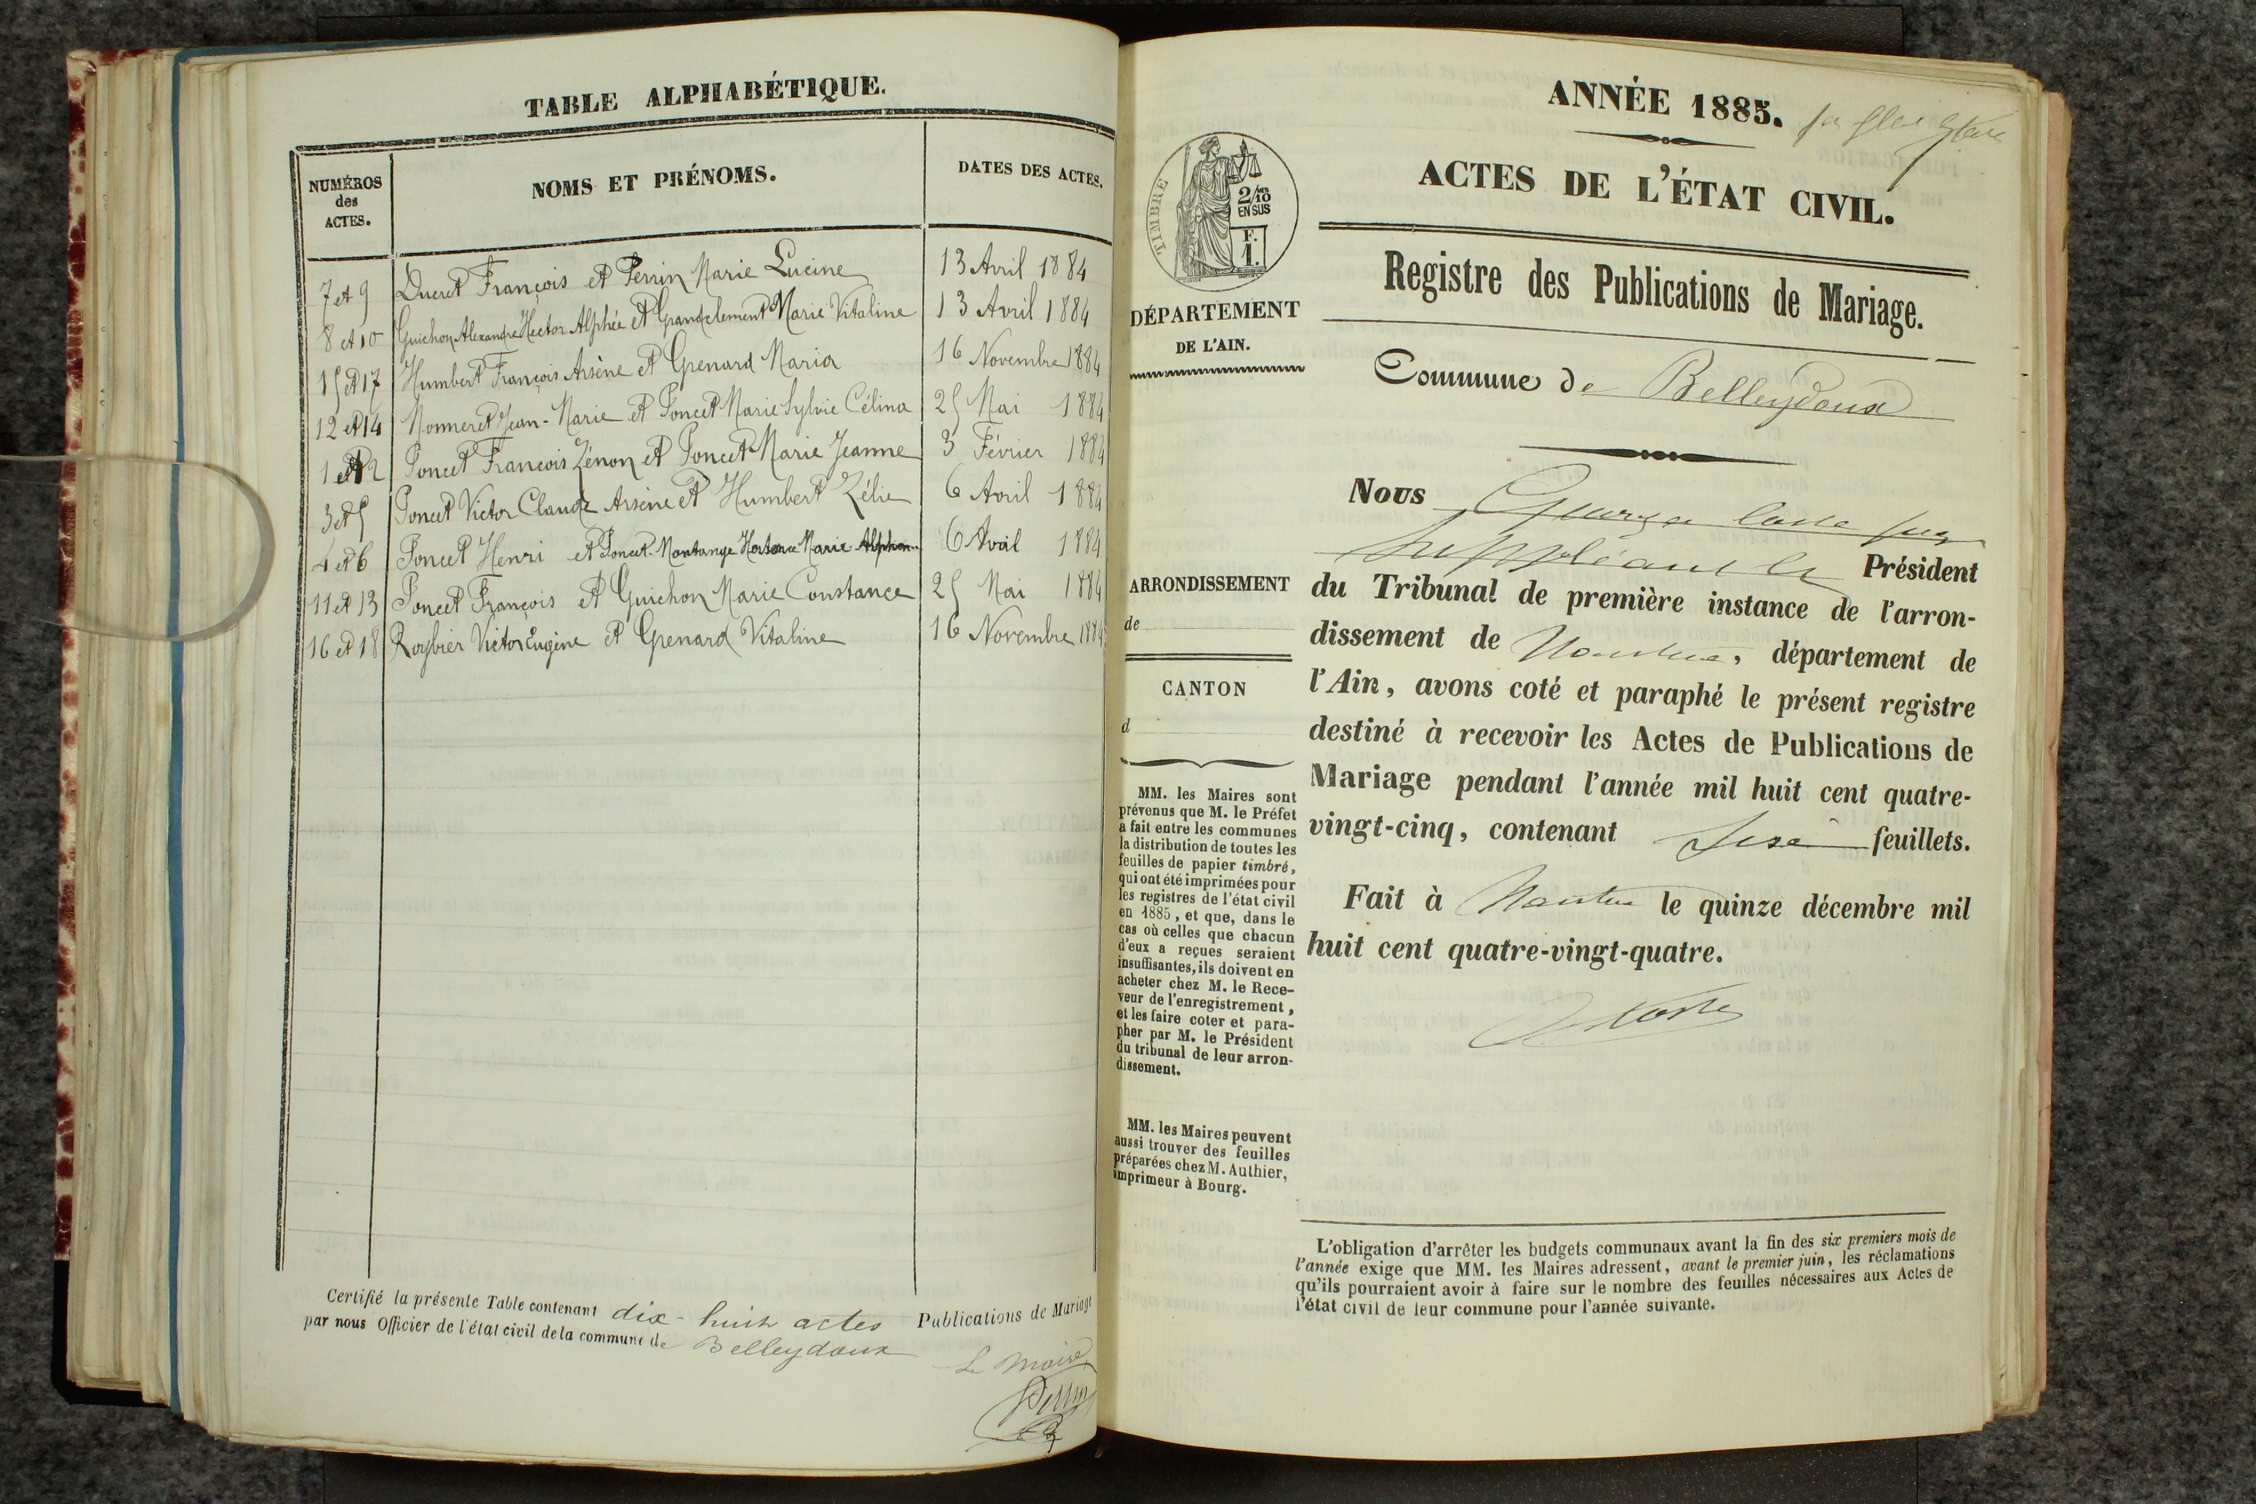 TABLE ALPHABÉTIQUE.
NUMÉROS
des
ACTES.
NOMS ET PRÉNOMS.
DATES DES ACTES.
7 et 9 Ducret François et Perrin Marie Lucine 13 Avril 1884
8 et 10 Guichon Alexandre Hector Alphée et Grandclement Marie Vitaline 13 Avril 1884
15 et 17 Humbert François Arsène et Grenard Maria 16 Novembre 1884
12 et 14 Monneret Jean-Marie et Poncet Marie Sylvie Célina 25 Mai 1884
1 et 2 Poncet François Zénon et Poncet Marie Jeanne 3 Février 1884
3 et 5 Poncet Victor Claude Arsène et Humbert Zélie 6 Avril 1884
4 et 6 Poncet Henri et Poncet-Montange Hortence Marie 6 Avril 1884
11 et 13 Poncet François et Guichon Marie Constance 25 Mai 1884
16 et 18 Roybier Victor Eugène et Grenard Vitaline 16 Novembre 1884
Certifié la présente Table contenant dix-huit actes Publications de Mariage
par nous Officier de l'état civil de la commune de Belleydoux
Le Maire
Perrin
ANNÉE 1885.
ACTES DE L'ÉTAT CIVIL.
TIMBRE
2/10
EN SUS
F.
1.
DÉPARTEMENT
DE L'AIN.
Registre des Publications de Mariage.
Commune de Belleydoux
ARRONDISSEMENT
de
CANTON
d
MM. les Maires sont
prévenus que M. le Préfet
a fait entre les communes
la distribution de toutes les
feuilles de papier timbré,
qui ont été imprimées pour
les registres de l'état civil
en 1885, et que, dans le
cas où celles que chacun
d'eux a reçues seraient
insuffisantes, ils doivent en
acheter chez M. le Rece-
veur de l'enregistrement,
et les faire coter et para-
pher par M. le Président
du tribunal de leur arron-
dissement.
MM. les Maires peuvent
aussi trouver des feuilles
préparées chez M. Authier,
imprimeur à Bourg.
Nous
suppléant le Président
du Tribunal de première instance de l'arron-
dissement de Nantua, département de
l'Ain, avons coté et paraphé le présent registre
destiné à recevoir les Actes de Publications de
Mariage pendant l'année mil huit cent quatre-
vingt-cinq, contenant feuillets.
Fait à Nantua le quinze décembre mil
huit cent quatre-vingt-quatre.
L'obligation d'arrêter les budgets communaux avant la fin des six premiers mois de
l'année exige que MM. les Maires adressent, avant le premier juin, les réclamations
qu'ils pourraient avoir à faire sur le nombre des feuilles nécessaires aux Actes de
l'état civil de leur commune pour l'année suivante.